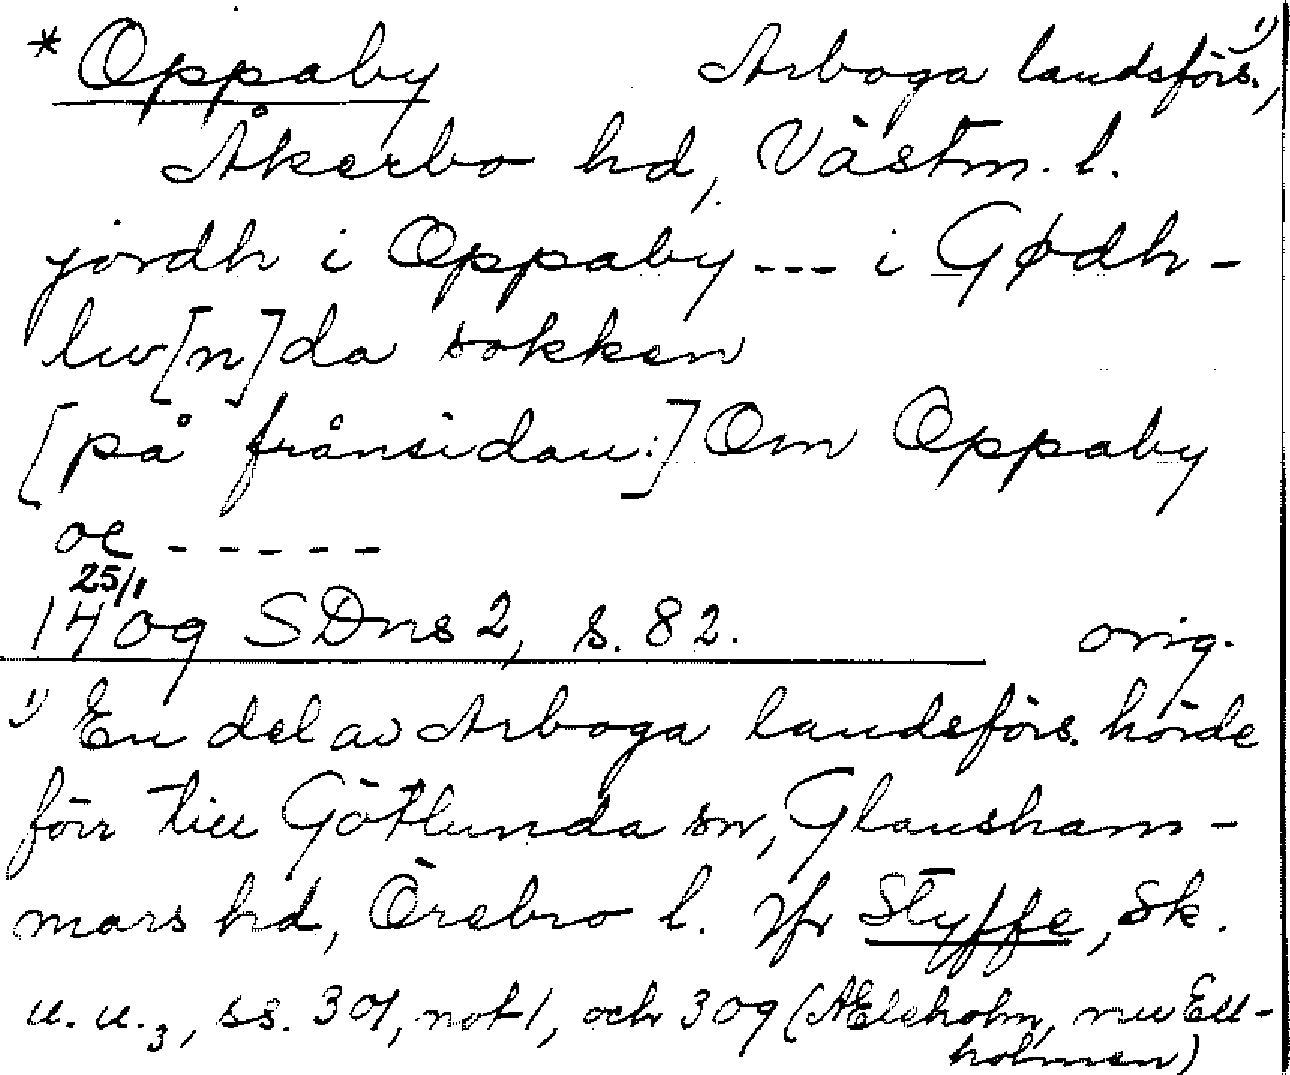 * Oppaby Arboga landsförs.,¹⁾
Åkerbo hd, Västm. l.
jordh i Oppaby --- i Gødh-
luv[n]da sokken
[på frånsidan:] Om Oppaby
oc -----
25/1
1409 SDns 2, s. 82. orig.
¹⁾ En del av Arboga landsförs. hörde
förr till Götlunda sn, Glansham-
mars hd, Örebro l. Jfr Styffe, Sk.
u. u.₃, ss. 301, not 1, och 309 (Ælsholm, nu Ell-
holmen)